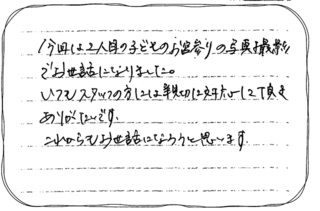 今回は2人目の子どものお宮参りの写真撮影
でお世話になりました。
いつもスタッフの方には親切に対応して頂き
ありがたいです。
これからもお世話になろうと思います。